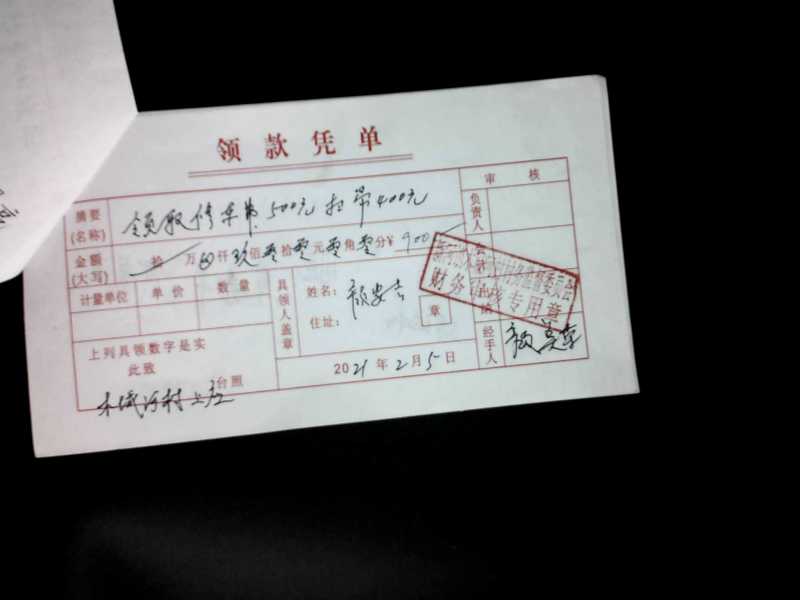 领款凭单
审核
摘要(名称) 领取修车费500元 扫帚400元
负责人
金额(大写) 拾 万 仟玖佰零拾零元零角零分¥900
会计
计量单位 单价 数量
具领人盖章
姓名: 颜安吉
住址:
章
财务审核专用章
上列具领数字是实
此致
台照
2021年2月5日
经手人